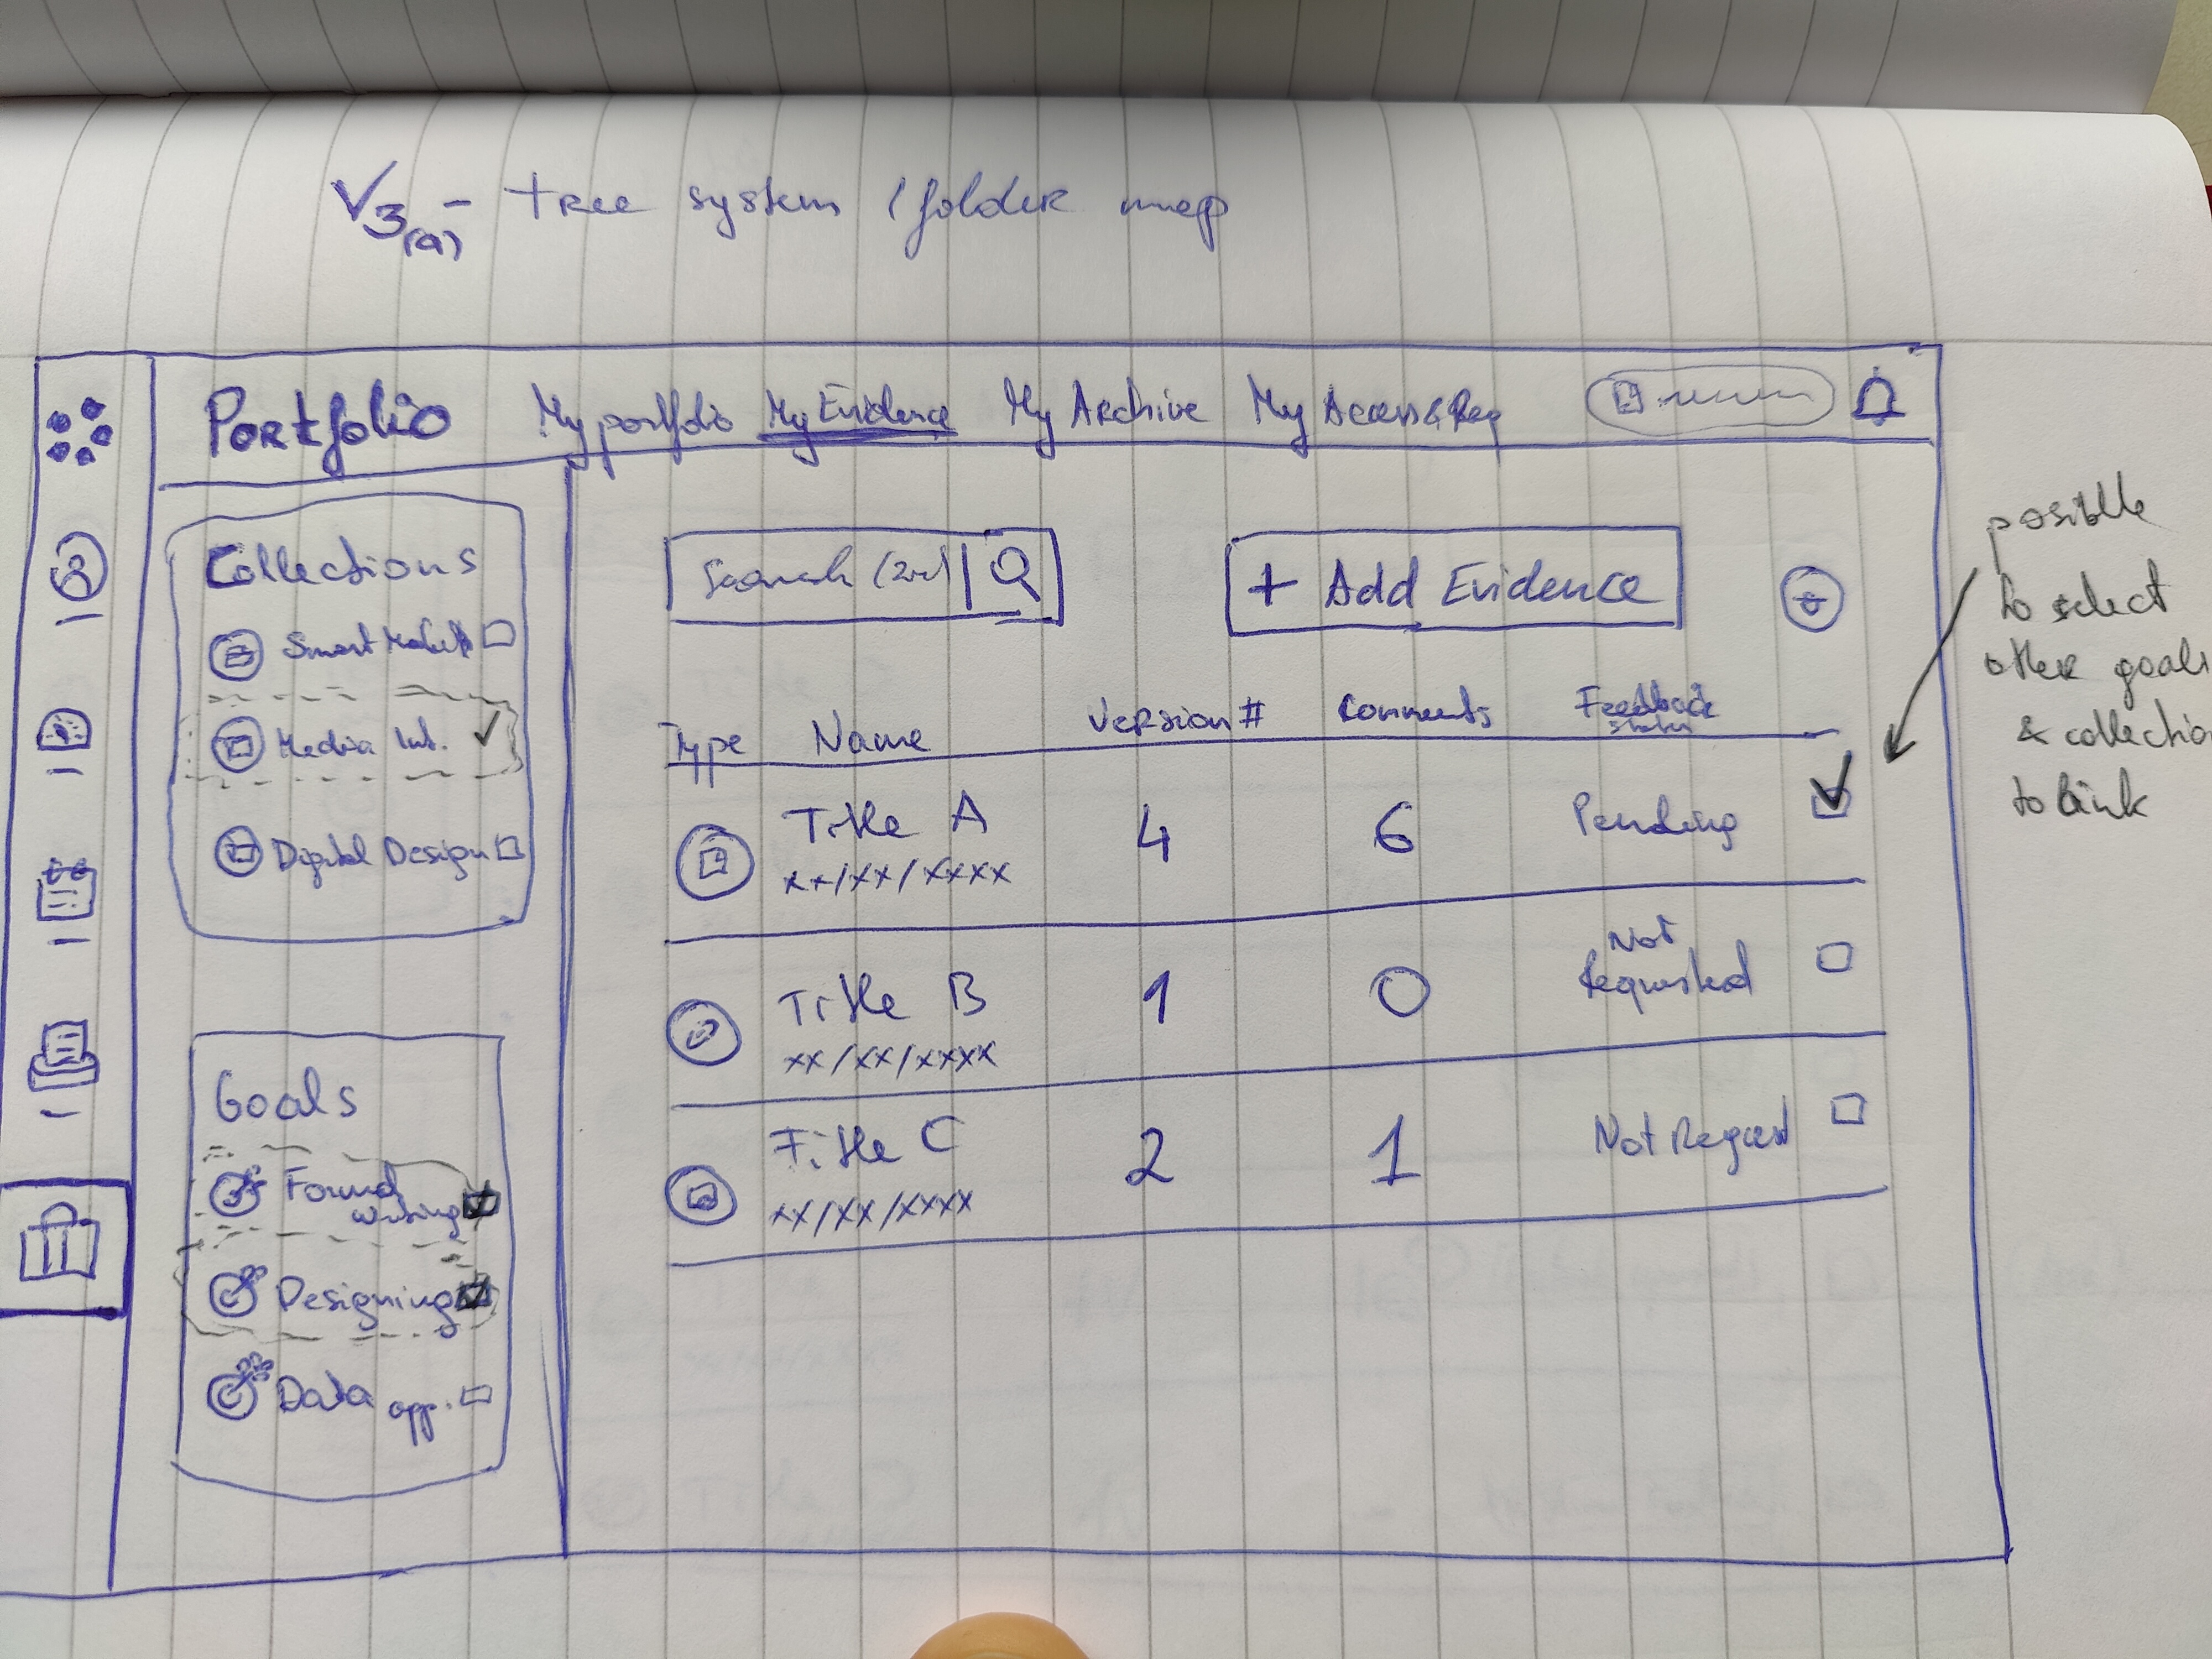 V3(a) - tree system / folder map
Portfolio My portfolio My Evidence My Archive My Access & Req
Collections
Smart Mobile
Media Int.
Digital Design
Goals
Formal
writing
Designing
Data app.
Search
+ Add Evidence
Type Name Version # Comments Feedback
status
Title A 4 6 Pending
xx/xx/xxxx
Title B 1 0 Not
Requested
xx/xx/xxxx
Title C 2 1 Not Request
xx/xx/xxxx
posible
to select
other goals
& collection
to link